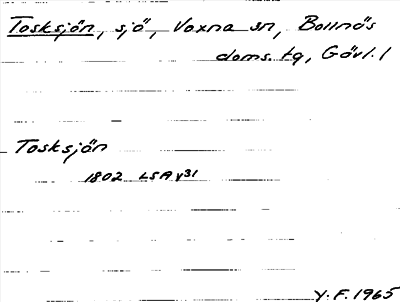 Tosksjön, sjö, Voxna sn, Bollnäs
doms. tg, Gävl. l
Tosksjön
1802 LSA v31
Y. F. 1965